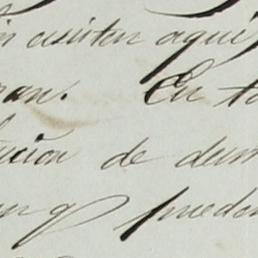 in existen aqui
ran. En ta
lucion de dem
ung puedan